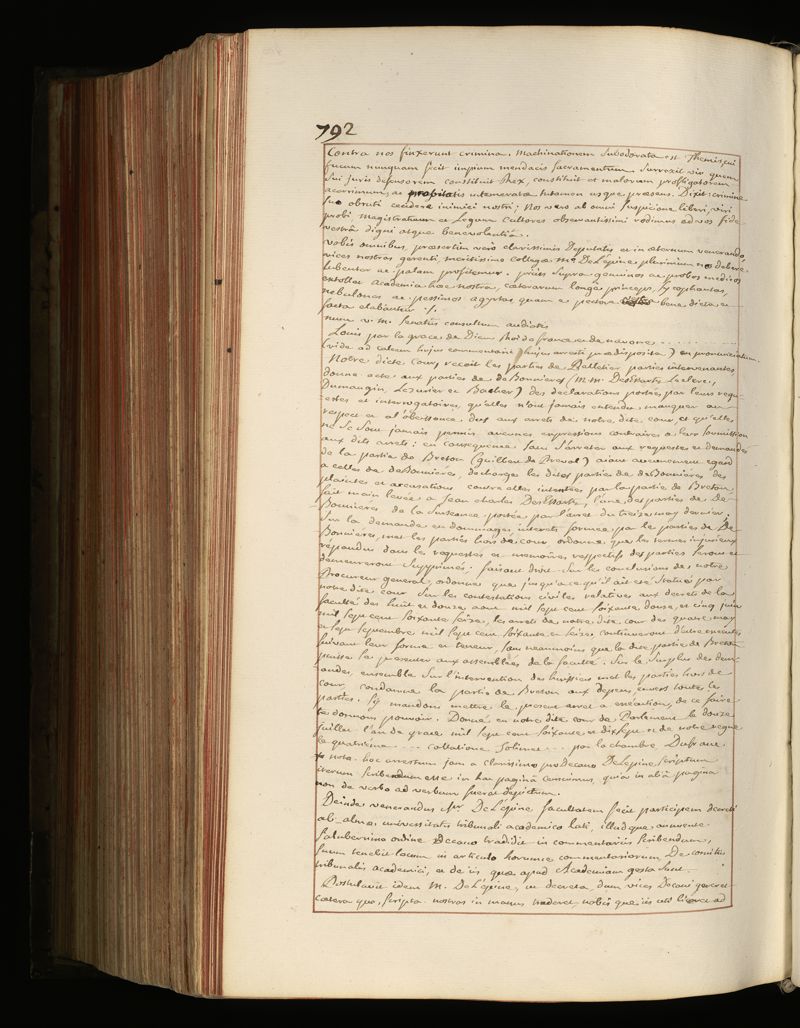 792
Contra nos finxerunt crimina. Machinationem subodorata est Themis, cui
fucum nunquam fecit impium mendacis sacramentum. Surrexit vir quem
sui juris defensorem constituit Rex, constituit et malorum profligatorem
acerrimum, ac probitatis intemerata tutamen usque praesens. Dixit: crimine
suo obruti cecidere inimici nostri; nos vero ab omni suspicione liberi, viri
probi, magistratuum et Legum cultores observantissimi redimus ad vos fide
vestrâ digni atque benevolentiâ.
vobis omnibus, praesertim vero clarissimis Deputatis et in aeternum venerando
vices nostras gerenti meritissimo collegæ Mro. De L'épine plurimum nos debere
lubenter ac palam profitemur. prius supra geminos ac probos medicos
extollet academia haec nostra, caeterarum longè princeps, sycophantas,
nebulones ac pessimos agyrtas quam e pectore bene dicta et
facta elabantur ./.
nunc v. m. senatus consultum audiatis
Louis par la grace de Dieu Roi de france et de navarre ............
(vide ad calcem hujus commentarii hujus arresti praedisposita) en prononciation.
Notre dicte Cour, recoit les parties de Pelletier parties intervenantes,
donne acte aux parties de de Bonnieres (M.M. DesEssarts, Leclerc,
Dumangin, Lezurier et Bacher) des declarations portées par leurs requ-
êtes et interrogatoires, qu'elles n'ont jamais entendu manquer au
respect et à l'obeissance dus aux arrets de notre dite cour, et qu'elles
ne se sont jamais permis aucunes expressions contraires a leur soumission
aux dits arrets; en consequence sans s'arreter aux requestes et demandes
de la partie de Breton (guilbert de Preval) aiant aucunement egard
a celles de deBonnieres, decharge les dites parties de deBonnieres des
plaintes et accusations contre elles intentées par la partie de Breton,
fait main levée a Jean charles DesEssarts, l'une des parties de De
Bonnieres de la surseance portée par l'arret du treize may dernier.
Sur la demande en dommages interets formée par les parties de De
Bonnieres, met les parties hors de cour, ordonne que les termes injurieux
répandus dans les requestes et memoires respectifs des parties seront et
demeureront supprimés; faisant droit sur les conclusions de notre
Procureur general, ordonne que jusqu'a ce qu'il ait été statué par
notre dite cour sur les contestations civiles relatives aux decrets de la
faculté des huit et douze aout mil sept cent soixante douze, et cinq juin
mil sept cent soixante seize, les arrets de notre dite cour des quatre may
et sept septembre mil sept cent soixante et seize continueront d'etre executés
suivant leur forme et teneur, sans neanmoins que la dite partie de Breton
puisse se presenter aux assemblées de la faculté. Sur le surplus des dem-
andes, ensemble sur l'intervention des huissiers met les parties hors de
cour, condamne la partie de Breton aux depens envers toutes les
parties. Sy mandons mettre le present arret a execution, de ce faire
te donnons pouvoir. Donné en notre dite cour de Parlement le douze
juillet l'an de grace mil sept cent soixante et dix sept et de notre regne
le quatrieme .... collationé ... par la chambre Dufranc
nota. hoc arrestum jam a clarissimo prodecano DeLepine scriptum
iterum scribendum esse in hac paginâ censuimus, quia in aliâ paginâ
non de verbo ad verbum fuerat depictum.
Deinde venerandus Mr. De L'épine facultatem fecit participem decreti
ab almae universitatis tribunali academico lati, illudque annuente
saluberrimo ordine Decano tradidit in commentariis scribendum,
suum tenebit locum in articulo horumce commentariorum De comitiis
tribunalis academici, et de iis quae apud Academiam gesta sunt.
Postulavit idem M. De L'épine, ut decreta, dum vices Decani gereret
caetera quo, scripta nostras in manus traderet, nobis que iis uti liceret ad